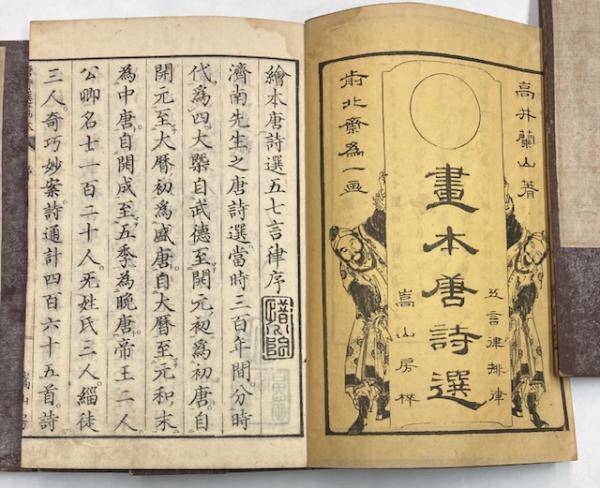 高井蘭山著
畫本唐詩選
五言律排律
嵩山房梓
前北齋爲一畫
繪本唐詩選五七言律序
濟南先生之唐詩選當時三百年間分時
代爲四大槩自武德至開元初爲初唐自
開元至大曆初爲盛唐自大曆至元和末
為中唐自開成至五季為晚唐帝王二人
公卿名士一百二十人死姓氏三人緇徒
三人奇巧妙案詩通計四百六十五首詩